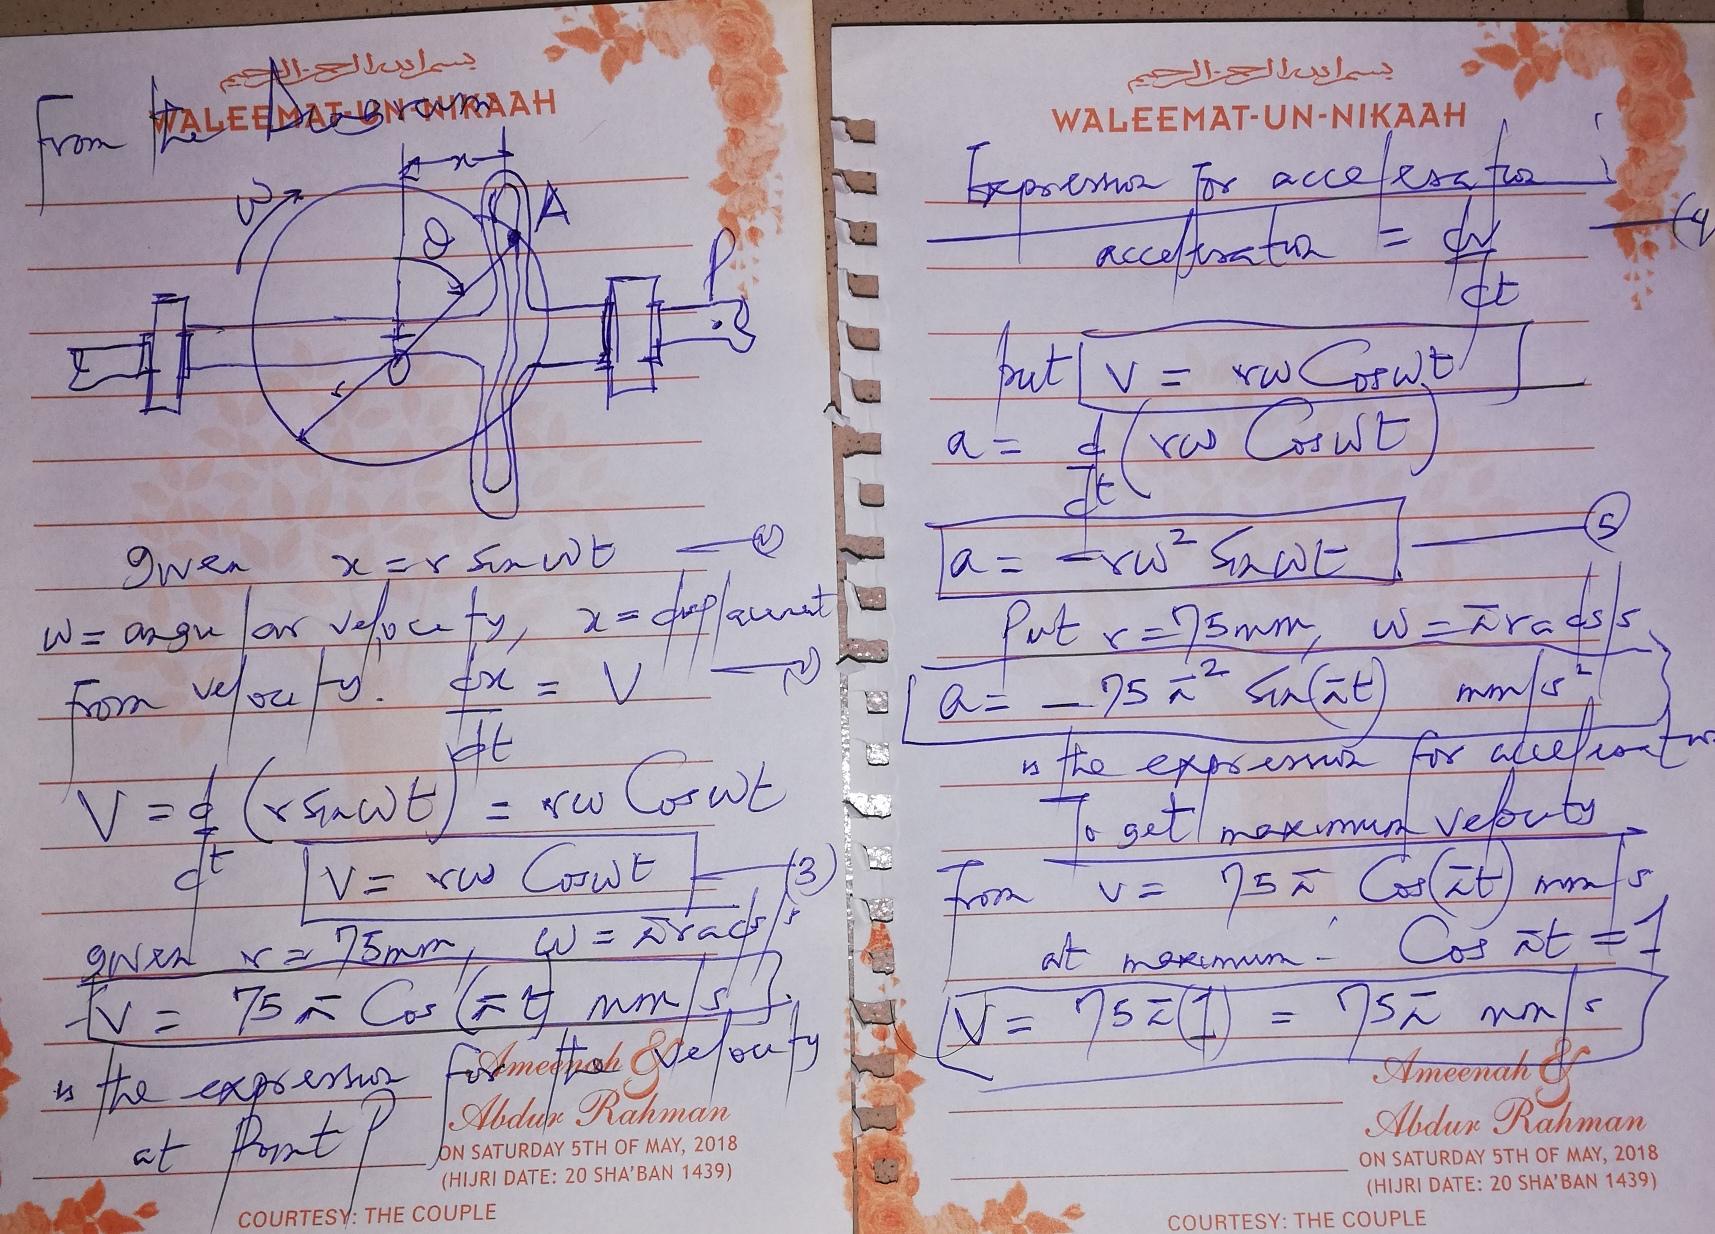 بسم الله الرحمن الرحيم
WALEEMAT-UN-NIKAAH
From the Diagram
x
ω
A
θ
P
O
r
given x = r Sin ωt ①
ω = angular velocity, x = displacement
From velocity: dx/dt = V
V = d/dt (r sin ωt) = rω Cos ωt
V = rω Cos ωt (3)
given r = 75mm, ω = π rads/s
V = 75π Cos (πt) mm/s
is the expression for the velocity
at Point P
Ameenah &
Abdur Rahman
ON SATURDAY 5TH OF MAY, 2018
(HIJRI DATE: 20 SHA'BAN 1439)
COURTESY: THE COUPLE
بسم الله الرحمن الرحيم
WALEEMAT-UN-NIKAAH
Expression for acceleration :
acceleration = dv/dt (4
put V = rω Cos ωt
a = d/dt (rω Cos ωt)
a = -rω² Sin ωt ⑤
Put r = 75mm, ω = π rads/s
a = - 75 π² Sin(πt) mm/s²
is the expression for acceleration
To get maximum velocity
From v = 75π Cos(πt) mm/s
at maximum : Cos πt = 1
V = 75π(1) = 75π mm/s
Ameenah &
Abdur Rahman
ON SATURDAY 5TH OF MAY, 2018
(HIJRI DATE: 20 SHA'BAN 1439)
COURTESY: THE COUPLE